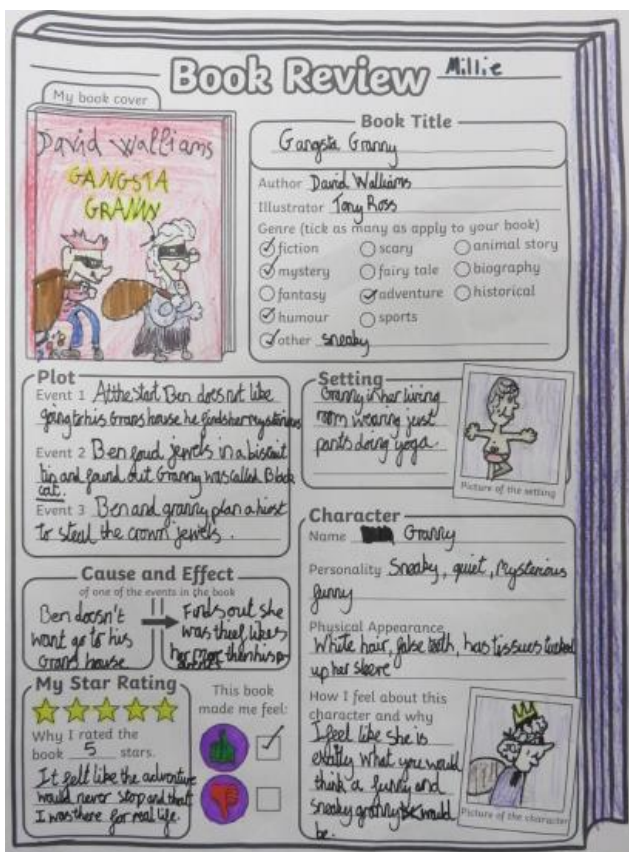 Book Review Millie
My book cover
David Walliams
GANGSTA
GRANNY
Book Title
Gangsta Granny
Author David Walliams
Illustrator Tony Ross
Genre (tick as many as apply to your book)
fiction scary animal story
mystery fairy tale biography
fantasy adventure historical
humour sports
other sneaky
Plot
Event 1 At the start Ben does not like
going to his Grans house he finds her mysterious
Event 2 Ben foud jewels in a biscuit
tin and found out Granny was called Black
cat.
Event 3 Ben and granny plan a hiest
to steal the crown jewels.
Setting
Granny in her living
room wearing just
pants doing yoga.
Picture of the setting
Cause and Effect
of one of the events in the book
Ben doesn't
want go to his
Grans house
Finds out she
was thief likes
her more then his
Character
Name Granny
Personality Sneaky, quiet, Mysterious
funny
Physical Appearance
White hair, false teeth, has tissues tucked
up her sleeve
How I feel about this
character and why
I feel like she is
exatly what you would
think a funny and
sneaky granny would
be.
Picture of the character
My Star Rating
Why I rated the
book 5 stars.
It felt like the adventure
would never stop and that
I was there for real life.
This book
made me feel: